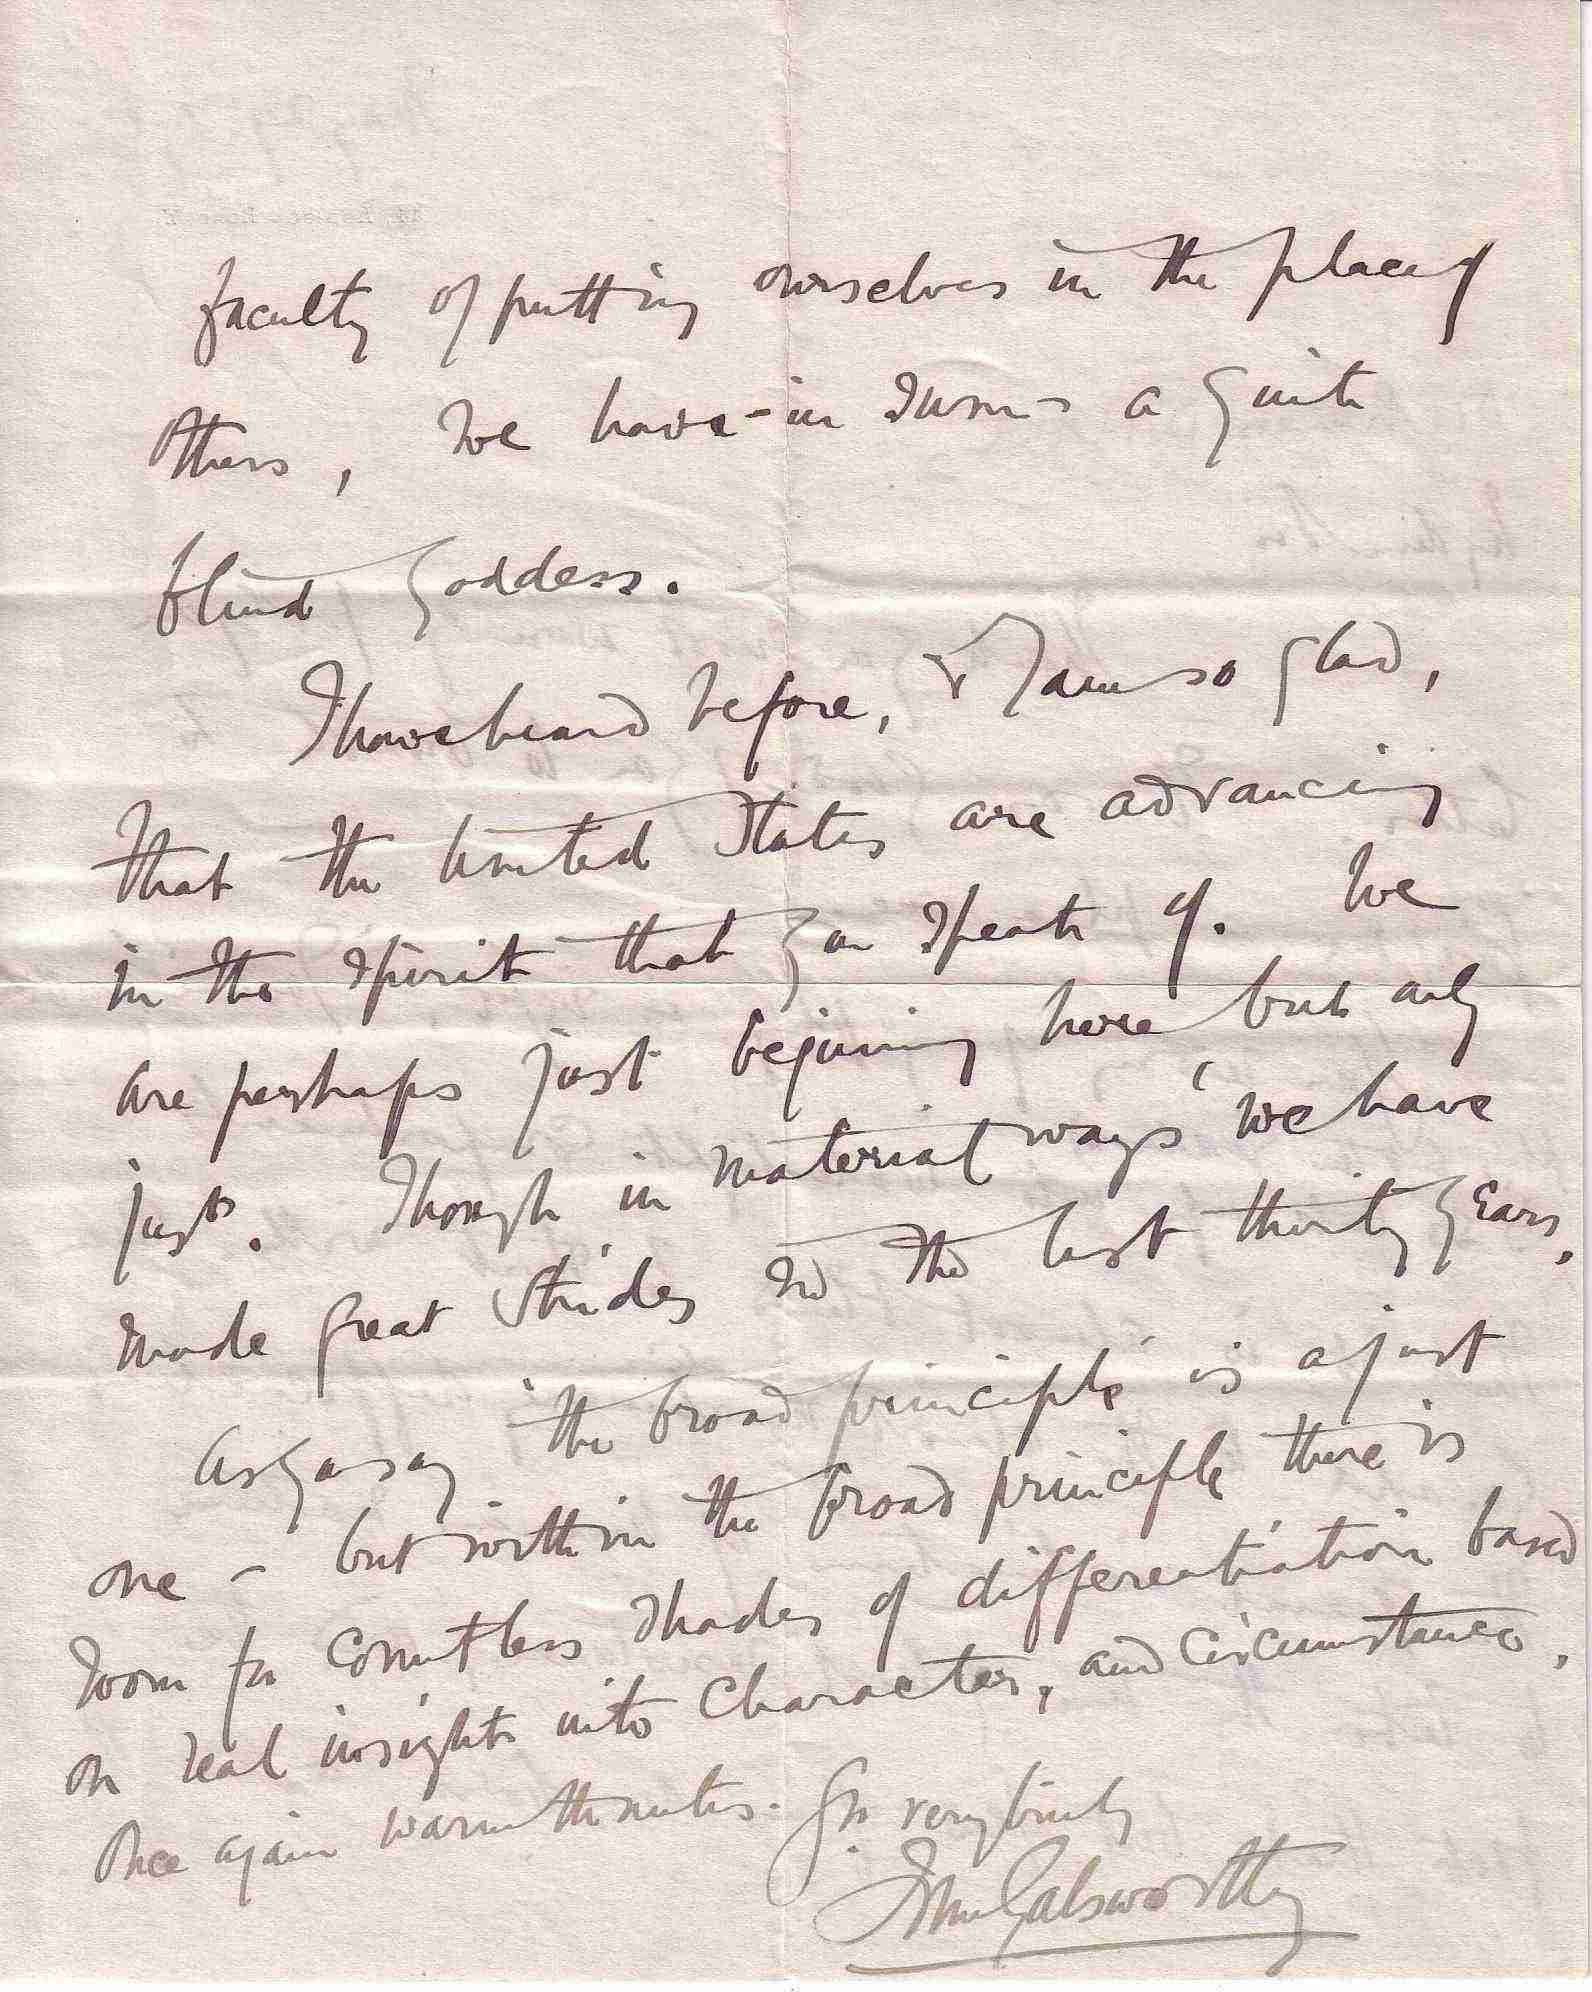 faculty of putting ourselves in the place of
others, we have - in sum - a quite
blind Goddess.
I have heard before, & I am so glad,
that the United States are advancing
in the spirit that you speak of. We
are perhaps just begining here, but only
just. Though in 'material ways' we have
made great strides in the last thirty years.
As you say 'the broad principle' is a just
one - but within the broad principle there is
room for countless shades of differentiation based
on real insight into character, and circumstance.
Once again warm thanks. Yrs very truly
John Galsworthy